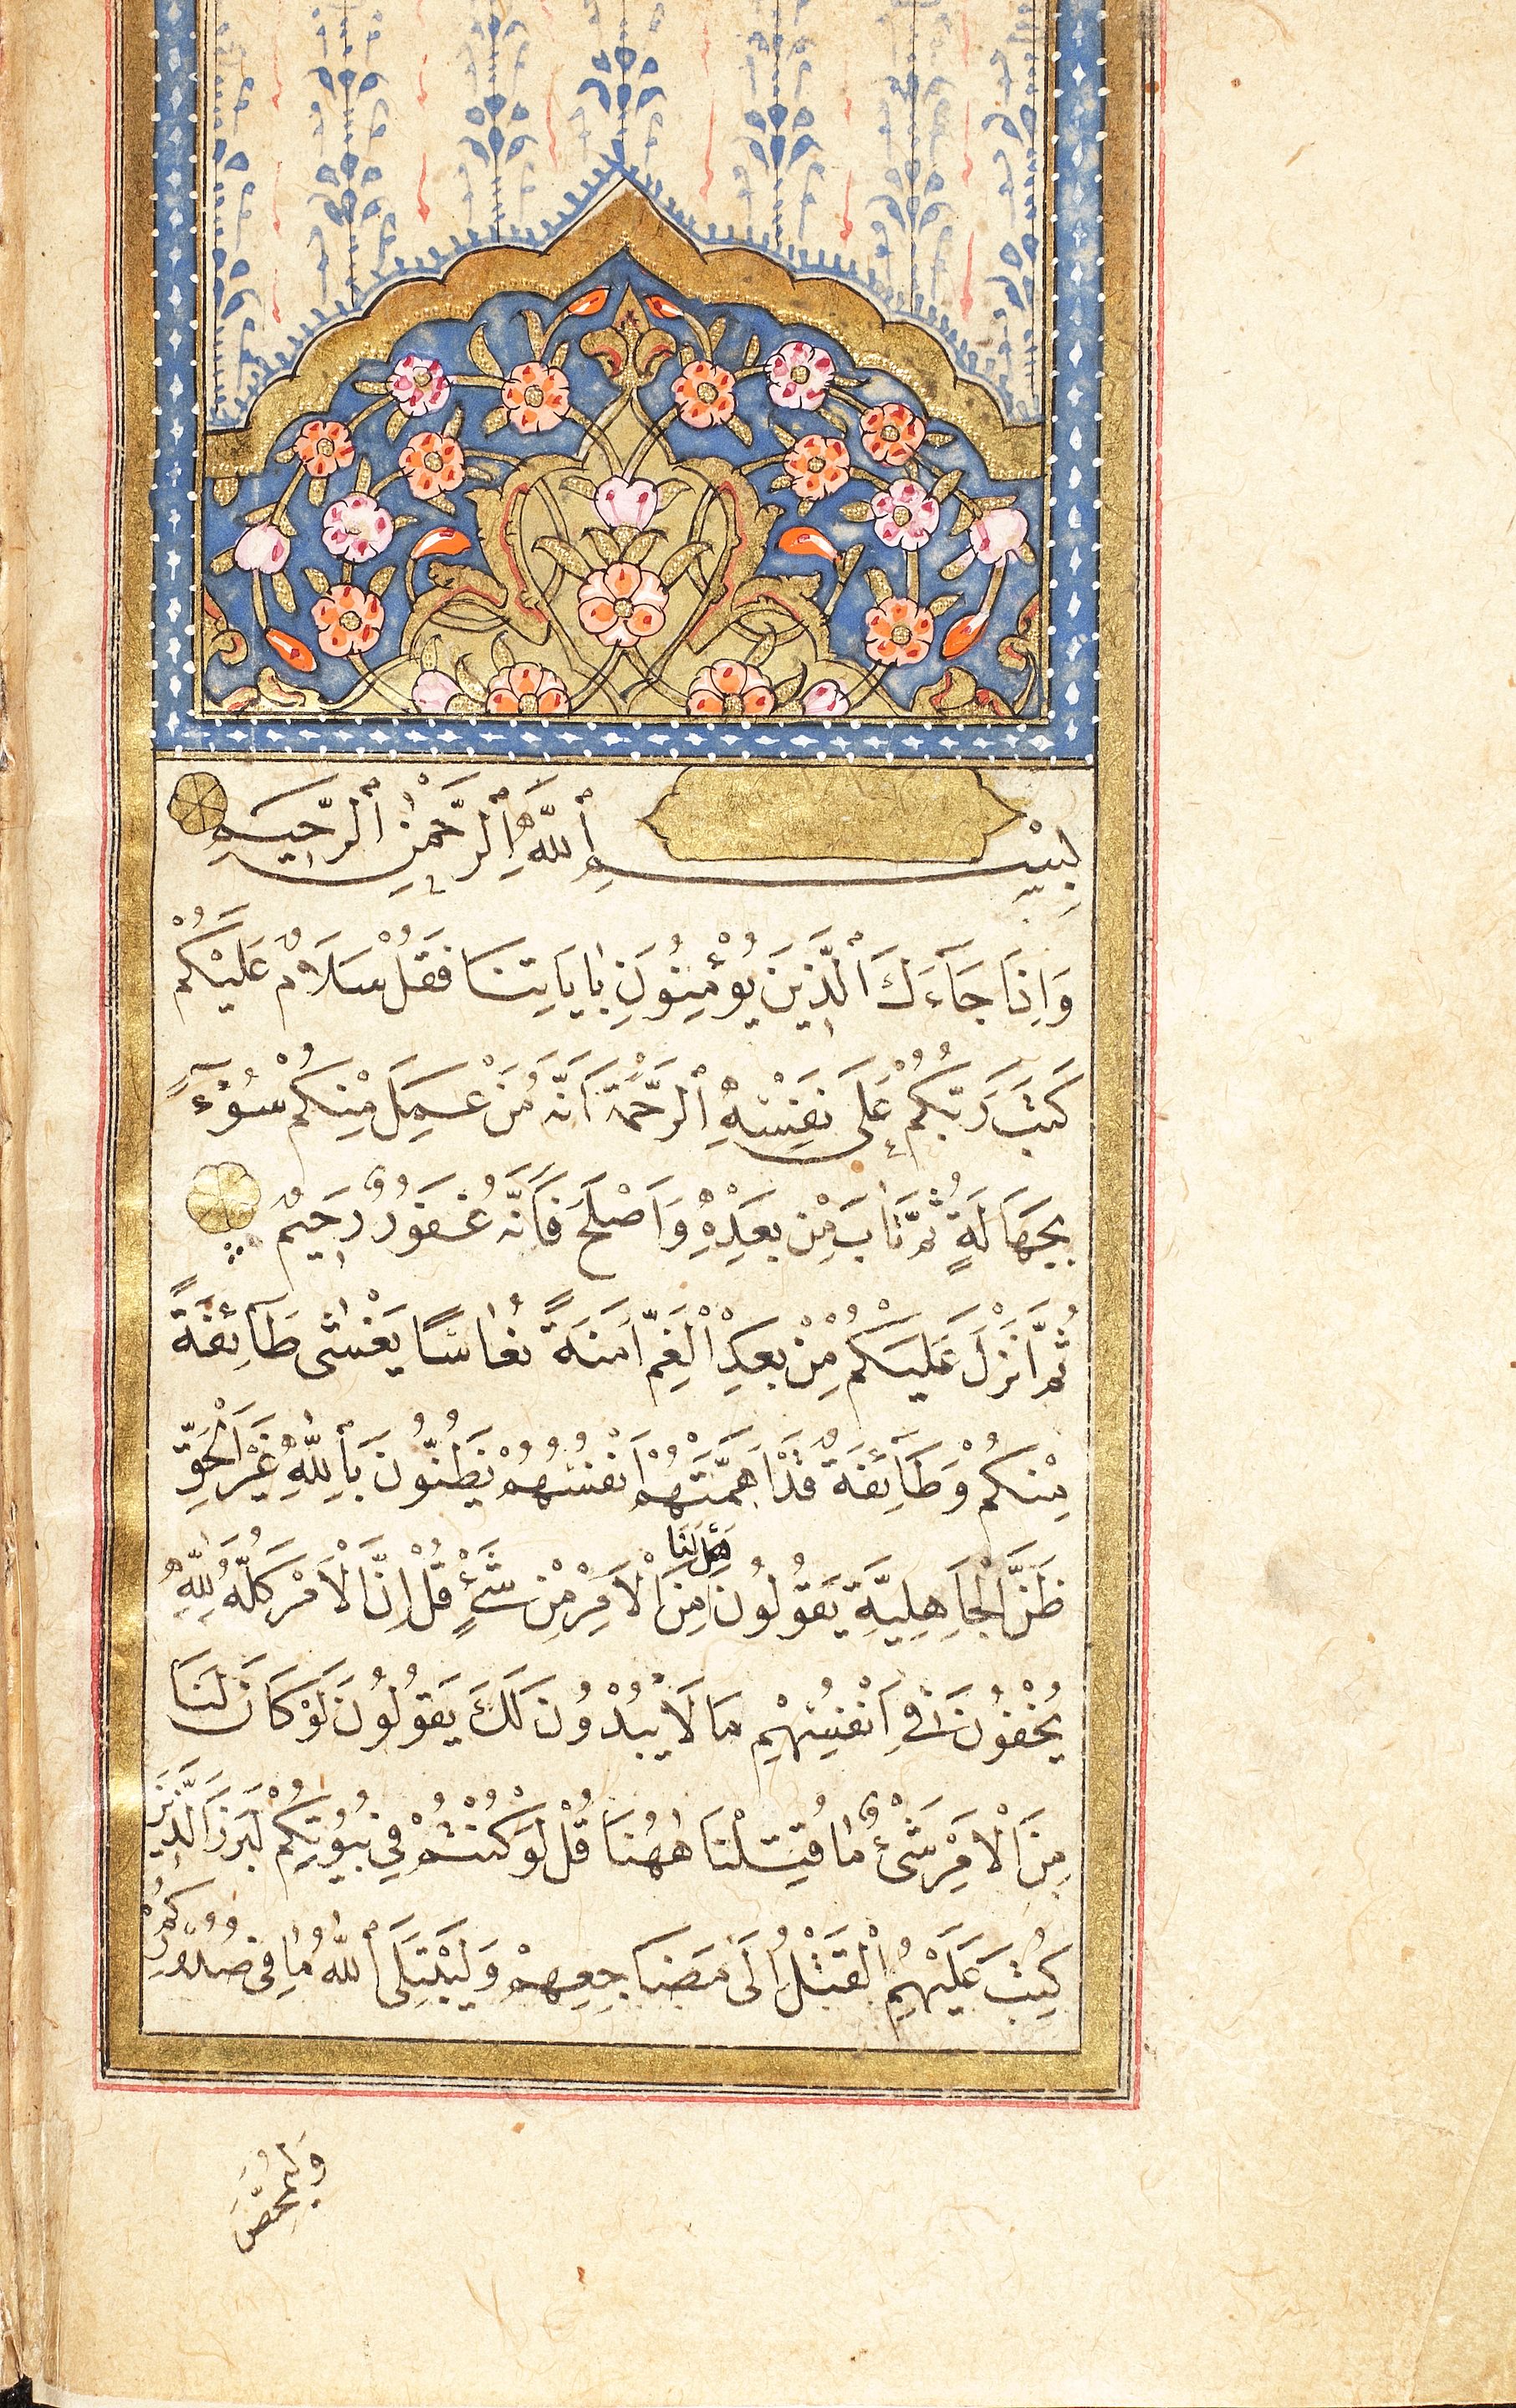 بِسْمِ ٱللّٰهِ ٱلرَّحْمٰنِ ٱلرَّحِيمِ
وَاِذَا جَآءَكَ ٱلَّذِينَ يُؤْمِنُونَ بِاٰيَاتِنَا فَقُلْ سَلَامٌ عَلَيْكُمْ
كَتَبَ رَبُّكُمْ عَلَى نَفْسِهِ ٱلرَّحْمَةَ اَنَّهُ مَنْ عَمِلَ مِنْكُمْ سُوٓءً
بِجَهَالَةٍ ثُمَّ تَابَ مِنْ بَعْدِهِ وَاَصْلَحَ فَاَنَّهُ غَفُورٌ رَحِيمٌ
ثُمَّ اَنْزَلَ عَلَيْكُمْ مِنْ بَعْدِ الْغَمِّ اَمَنَةً نُعَاسًا يَغْشٰى طَآئِفَةً
مِنْكُمْ وَطَآئِفَةٌ قَدْ اَهَمَّتْهُمْ اَنْفُسُهُمْ يَظُنُّونَ بِٱللّٰهِ غَيْرَ الْحَقِّ
ظَنَّ الْجَاهِلِيَّةِ يَقُولُونَ هَلْ لَنَا مِنَ الْاَمْرِ مِنْ شَىْءٍ قُلْ اِنَّ الْاَمْرَ كُلَّهُ لِلّٰهِ
يُخْفُونَ فِي اَنْفُسِهِمْ مَا لَا يُبْدُونَ لَكَ يَقُولُونَ لَوْ كَانَ لَنَا
مِنَ الْاَمْرِ شَىْءٌ مَا قُتِلْنَا هٰهُنَا قُلْ لَوْ كُنْتُمْ فِي بُيُوتِكُمْ لَبَرَزَ الَّذِينَ
كُتِبَ عَلَيْهِمُ الْقَتْلُ اِلَى مَضَاجِعِهِمْ وَلِيَبْتَلِىَ ٱللّٰهُ مَا فِي صُدُورِكُمْ
وَلِيُمَحِّصَ